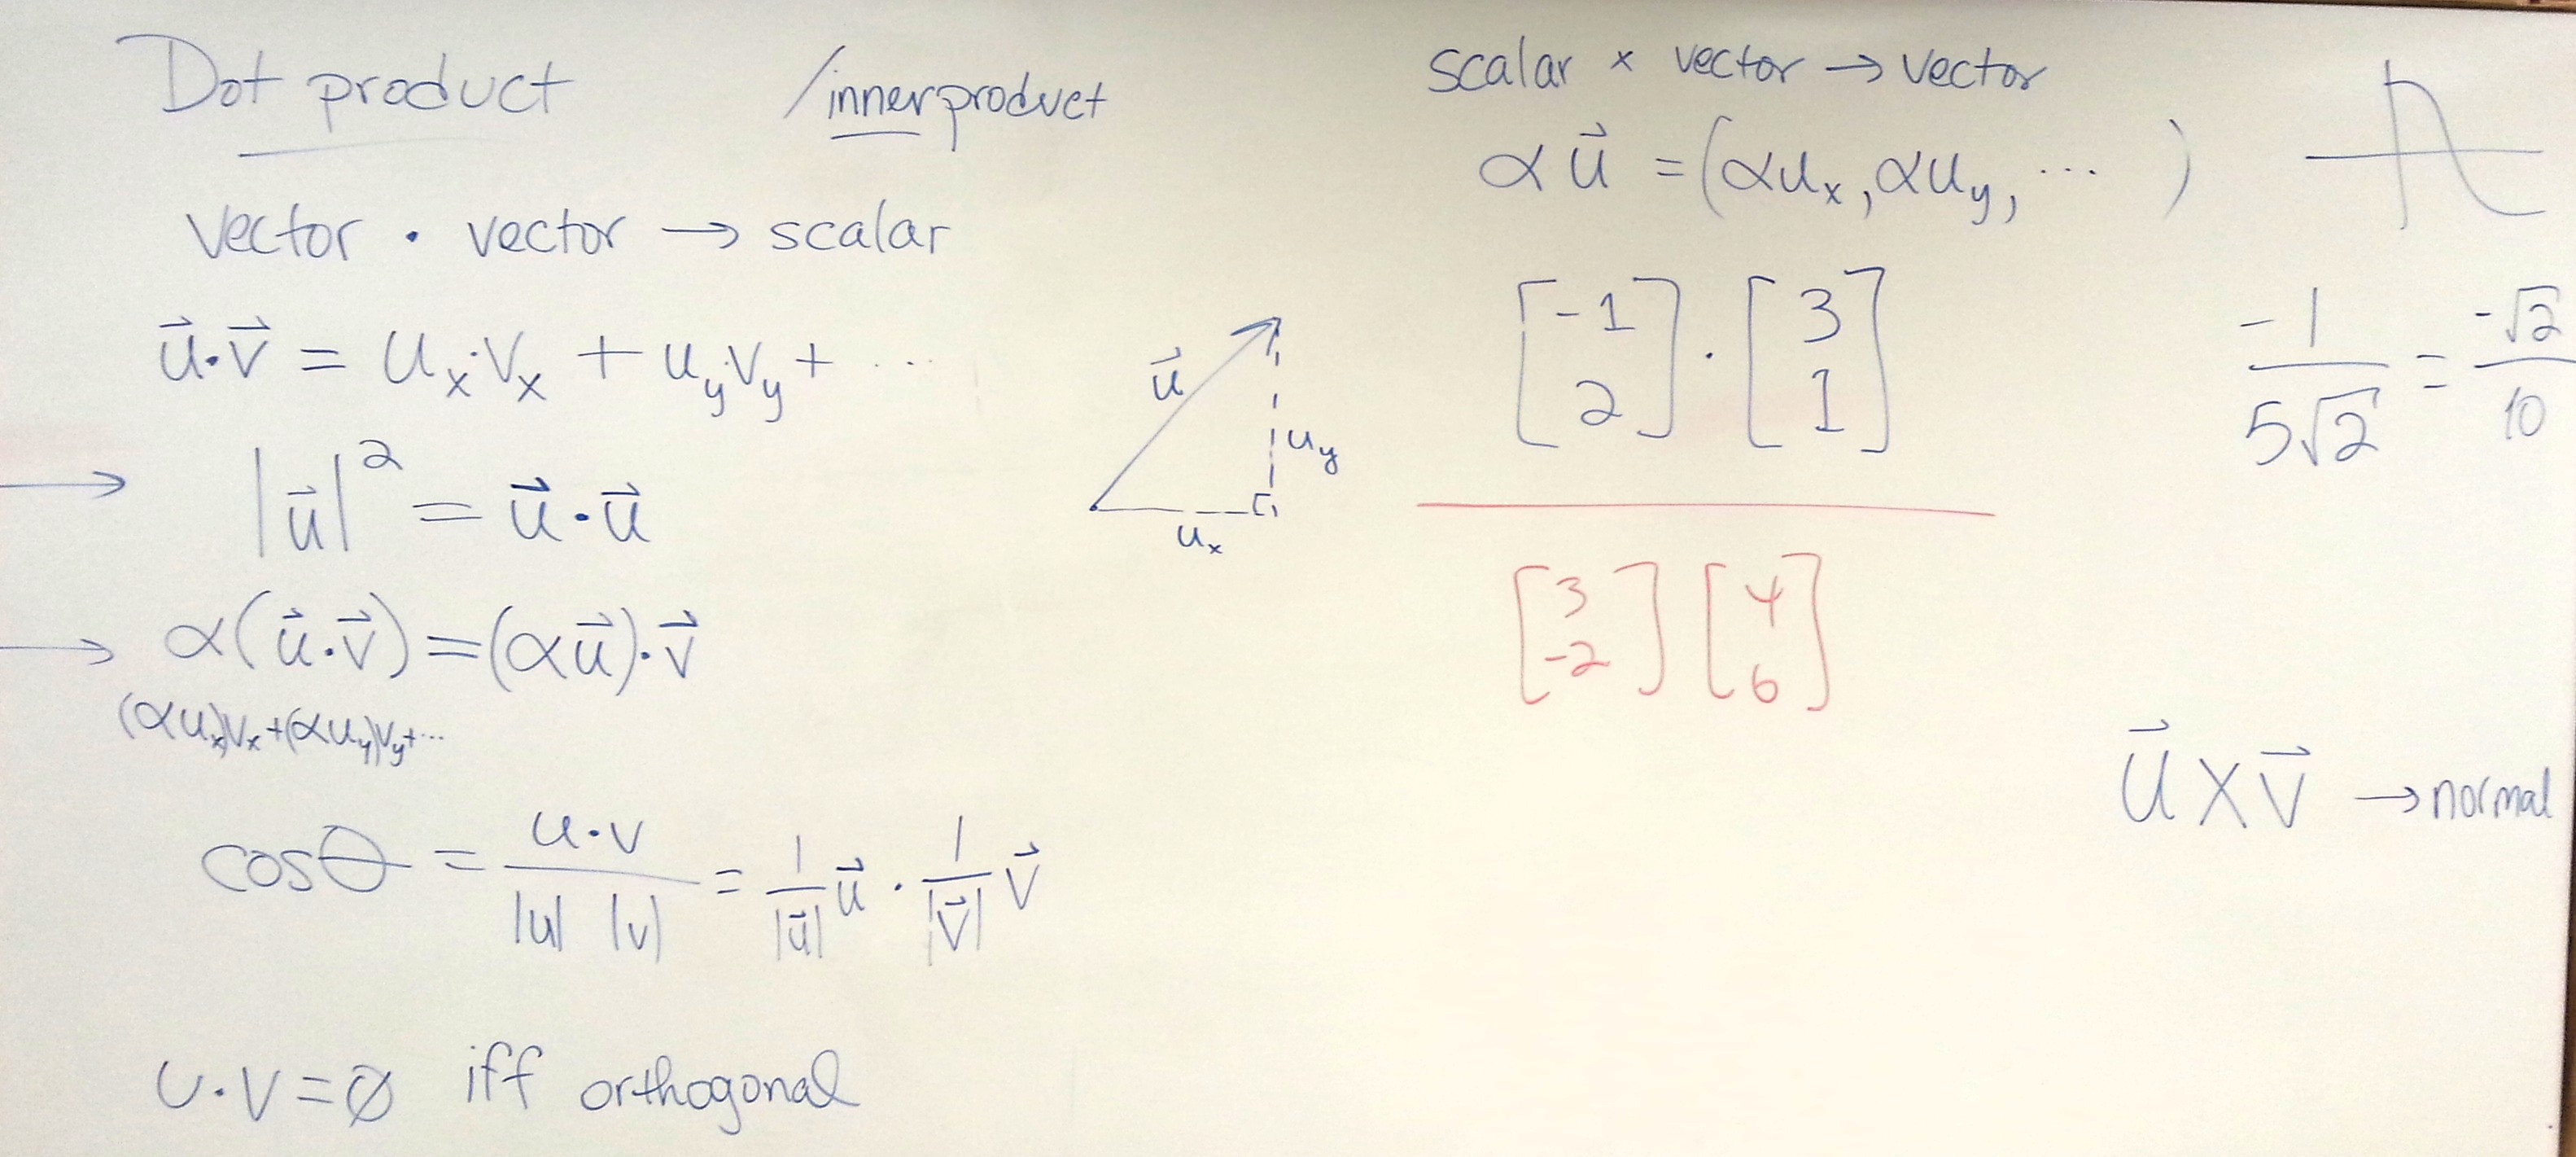 Dot product /innerproduct
vector · vector → scalar
u⃗·v⃗ = uₓ·vₓ + u_y·v_y + ...
→ |u⃗|² = u⃗·u⃗
→ α(u⃗·v⃗) = (αu⃗)·v⃗
(αuₓ)vₓ+(αu_y)v_y+...
cosθ = u·v / |u| |v| = 1/|u⃗| u⃗ · 1/|v⃗| v⃗
u·v=∅ iff orthogonal
u⃗
u_y
uₓ
scalar × vector → vector
αu⃗ = (αuₓ, αu_y, ... )
[-1 2] · [3 1]
[3 -2] [4 6]
-1 / 5√2 = -√2 / 10
u⃗ × v⃗ → normal